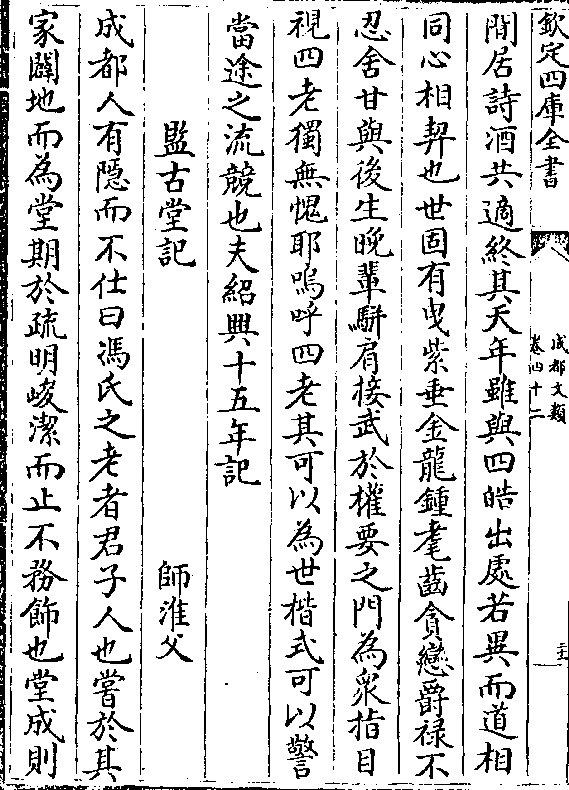 欽定四庫全書
成都文類
卷四十二
閒居詩酒共適終其天年雖與四皓出處若異而道相
同心相契也世固有曳紫垂金龍鍾耄齒貪戀爵禄不
忍舍甘與後生晩輩駢肩接武於權要之門為衆指目
視四老獨無愧耶嗚呼四老其可以為世楷式可以警
當途之流競也夫紹興十五年記
監古堂記
師淮父
成都人有隠而不仕曰馮氏之老者君子人也嘗於其
家闢地而為堂期於疏明峻潔而止不務飾也堂成則